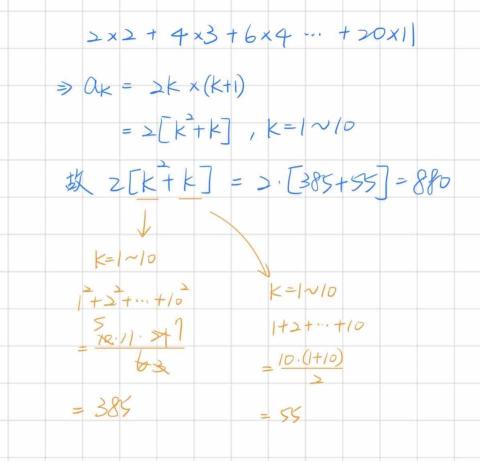 2×2 + 4×3 + 6×4 ⋯ + 20×11
⇒ aₖ = 2k × (k+1)
= 2[k²+k] , k=1~10
故 2[k²+k] = 2·[385+55] = 880
k=1~10
1²+2²+⋯+10²
= 5 10·11·21 7 / 6 3
= 385
k=1~10
1+2+⋯+10
= 10·(1+10) / 2
= 55